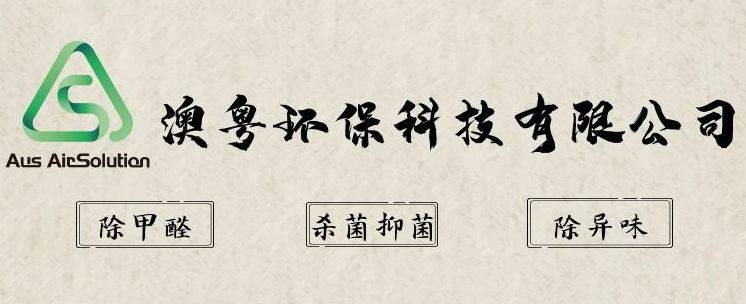 澳粤环保科技有限公司
Aus AirSolution
除甲醛
杀菌抑菌
除异味